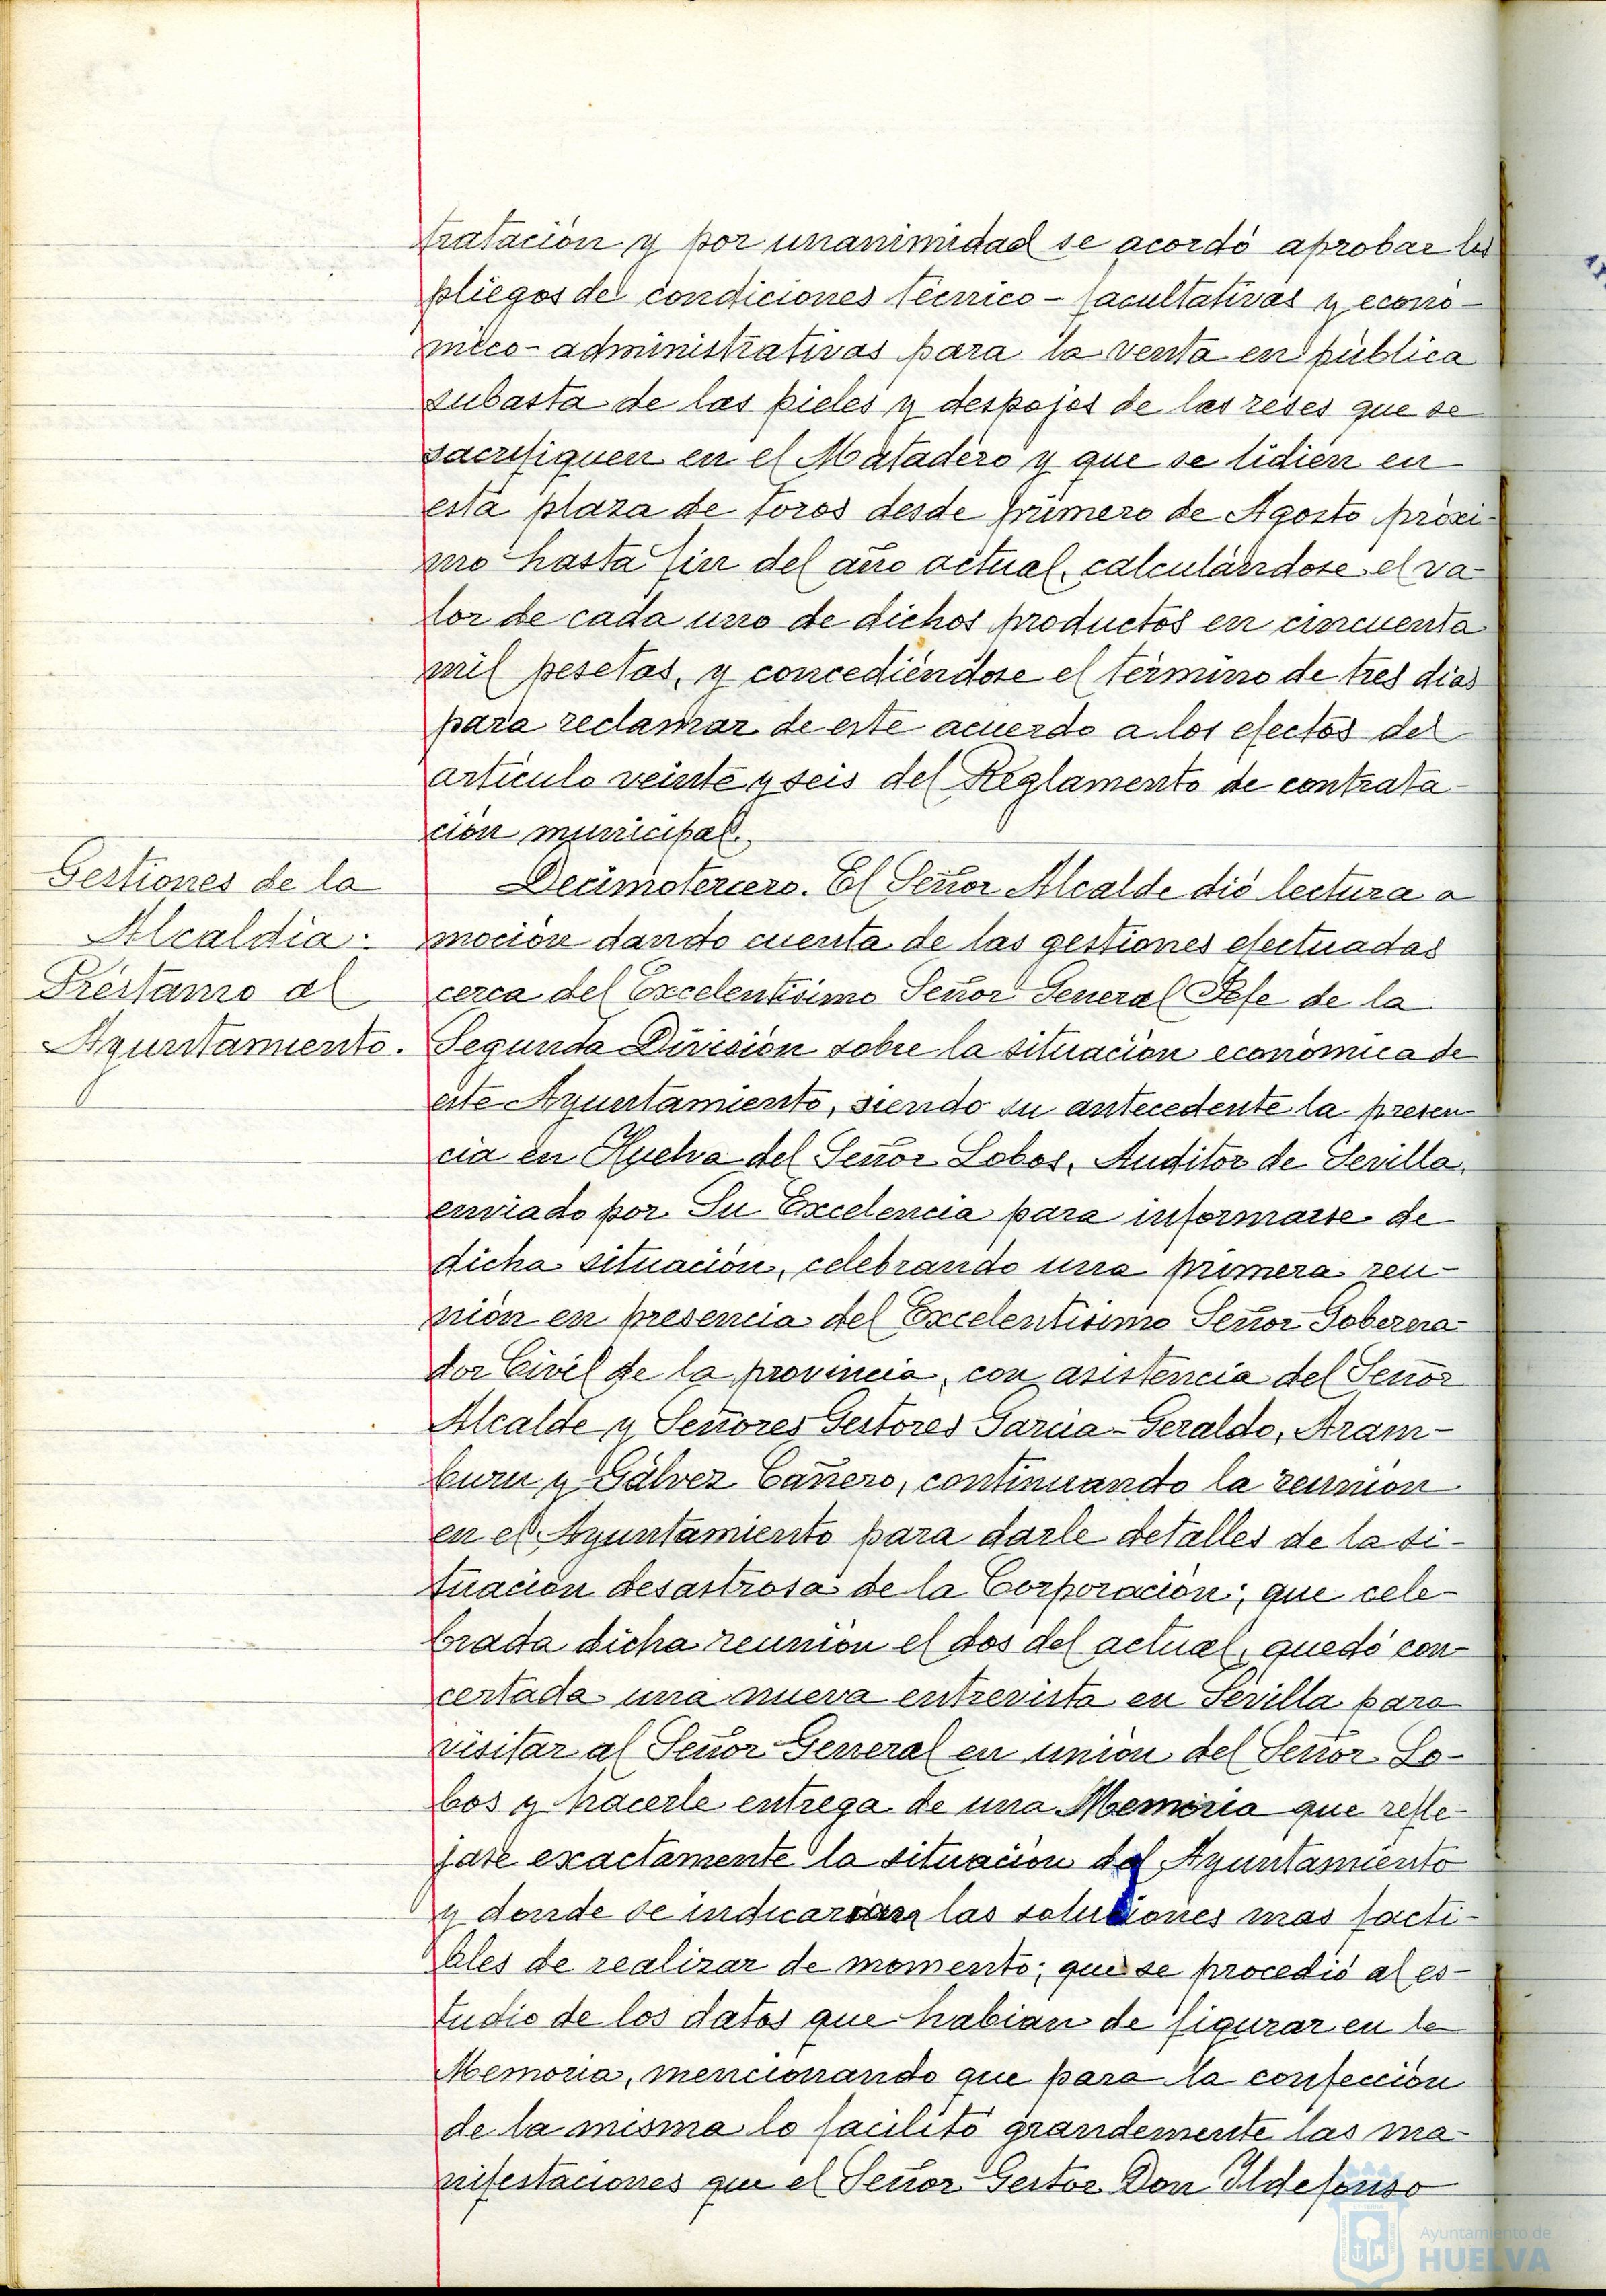 tratación y por unanimidad se acordó aprobar los
pliegos de condiciones técnico-facultativas y econó-
mico-administrativas para la venta en pública
subasta de las pieles y despojos de las reses que se
sacrifiquen en el Matadero y que se lidien en
esta plaza de toros desde primero de Agosto próxi-
mo hasta fin del año actual, calculándose el va-
lor de cada uno de dichos productos en cincuenta
mil pesetas, y concediéndose el término de tres dias
para reclamar de este acuerdo a los efectos del
artículo veinte y seis del Reglamento de contrata-
ción municipal.
Gestiones de la
Alcaldia.
Préstamo al
Ayuntamiento.
Decimotercero. El Señor Alcalde dió lectura a
moción dando cuenta de las gestiones efectuadas
cerca del Excelentísimo Señor General Jefe de la
Segunda División sobre la situación económica de
este Ayuntamiento, siendo su antecedente la presen-
cia en Huelva del Señor Lobos, Auditor de Sevilla,
enviado por Su Excelencia para informarse de
dicha situación, celebrando una primera reu-
nión en presencia del Excelentísimo Señor Goberna-
dor Civil de la provincia, con asistencia del Señor
Alcalde y Señores Gestores Garcia-Geraldo, Aram-
buru y Gálvez Cañero, continuando la reunion
en el Ayuntamiento para darle detalles de la si-
tuación desastrosa de la Corporación; que cele-
brada dicha reunión el dos del actual, quedó con-
certada una nueva entrevista en Sevilla para
visitar al Señor General en unión del Señor Lo-
bos y hacerle entrega de una Memoria que refle-
jase exactamente la situación del Ayuntamiento
y donde se indicarian las soluciones mas facti-
bles de realizar de momento; que se procedió al es-
tudio de los datos que habian de figurar en la
Memoria, mencionando que para la confección
de la misma lo facilitó grandemente las ma-
nifestaciones que el Señor Gestor Don Ildefonso
Ayuntamiento de
HUELVA